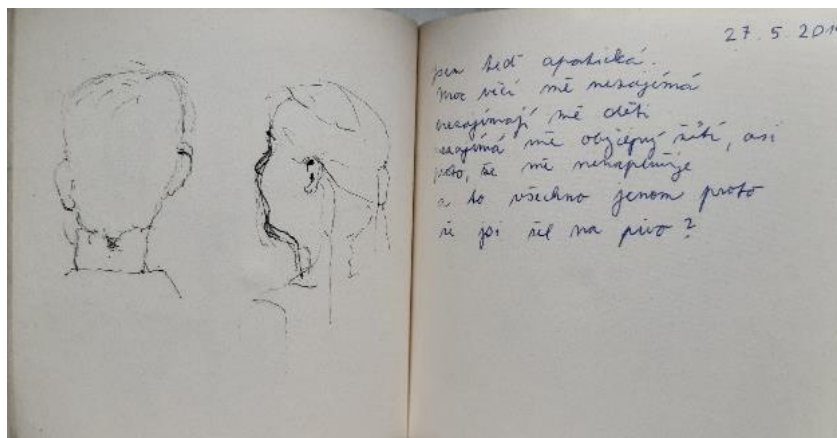 27. 5. 201
jsem teď apatická.
Moc věcí mě nezajímá
nezajímají mě děti
nezajímá mě obyčejný štětí, asi
proto, že mě nenaplňuje
a to všechno jenom proto
že jsi šel na pivo?